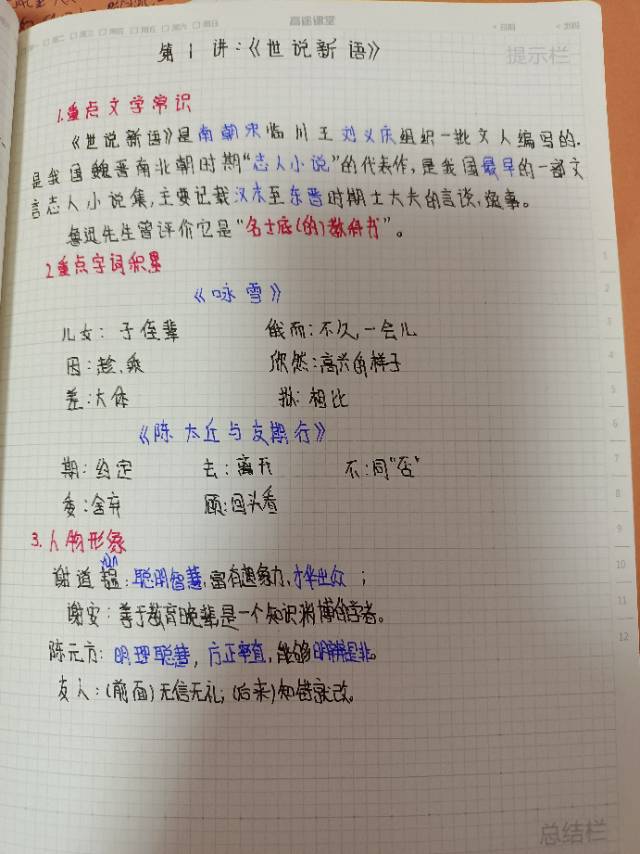 高途课堂
提示栏
第1讲:《世说新语》
1.重点文学常识
《世说新语》是南朝宋临川王刘义庆组织一批文人编写的.
是我国魏晋南北朝时期“志人小说”的代表作,是我国最早的一部文
言志人小说集,主要记载汉末至东晋时期士大夫的言谈,逸事。
鲁迅先生曾评价它是“名士底(的)教科书”。
2.重点字词积累
《咏雪》
儿女:子侄辈 俄而:不久,一会儿
因:趁、乘 欣然:高兴的样子
差:大体 拟:相比
《陈太丘与友期行》
期:约定 去:离开 不:同“否”
委:舍弃 顾:回头看
3.人物形象
谢道韫:聪明智慧,富有想象力,才华出众;
谢安:善于教育晚辈是一个知识渊博的学者。
陈元方:明理聪慧,方正率直,能够明辨是非。
友人:(前面)无信无礼;(后来)知错就改。
总结栏